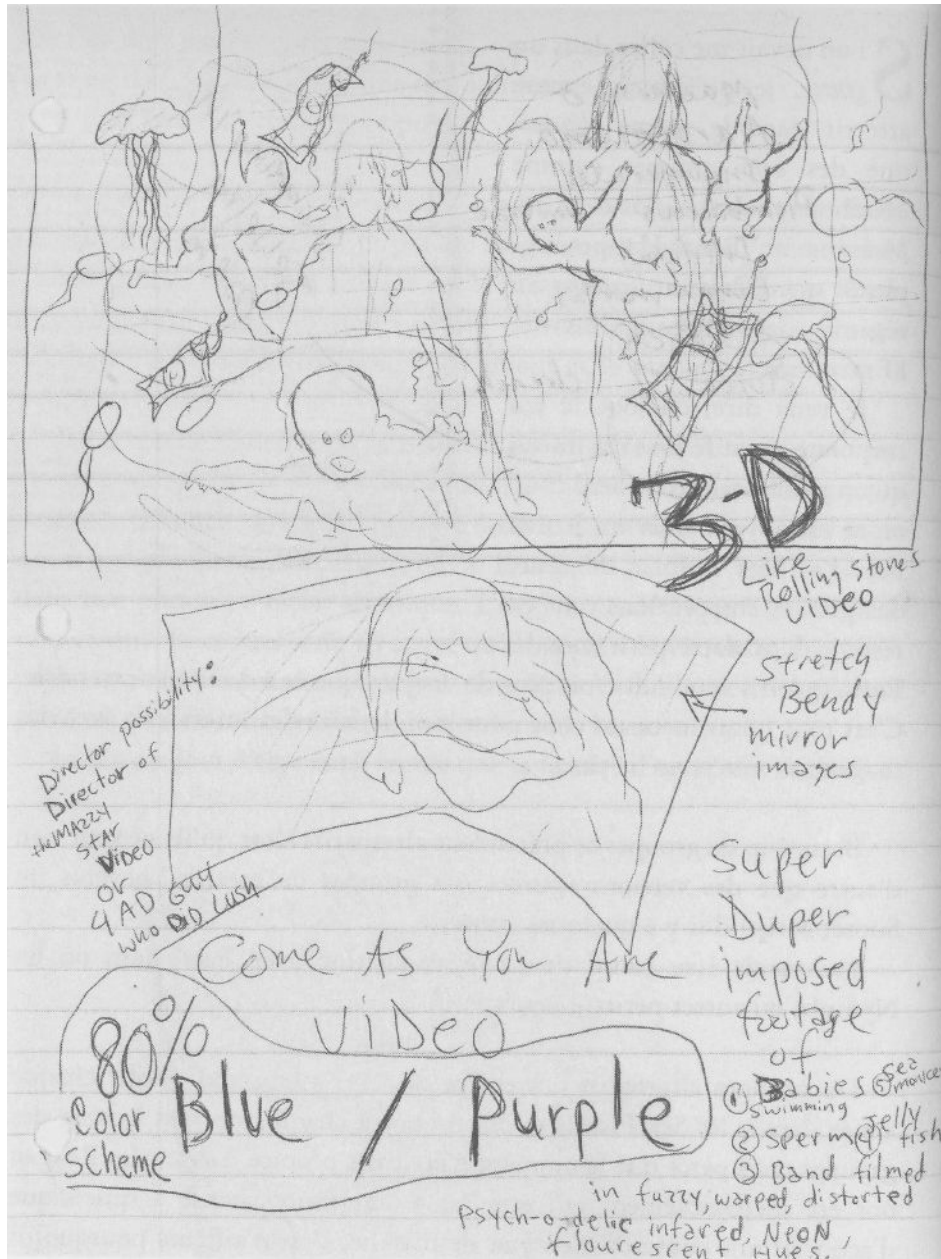 3-D
Like
Rolling Stones
VIDEO
stretch
Bendy
mirror
images
Director possibility:
Director of
the MAzzy
StAr
VIDEO
or
4AD Guy
who DiD Lush
Come As You Are
VIDEO
80%
Color
Scheme
Blue / Purple
Super
Duper
imposed
footage
of
① Babies
swimming
② Sperm
③ Band filmed
④ jelly fish
⑤ sea monkees
in fuzzy, warped, distorted
psych-o-delic infared, NeoN,
flourescent Hues.